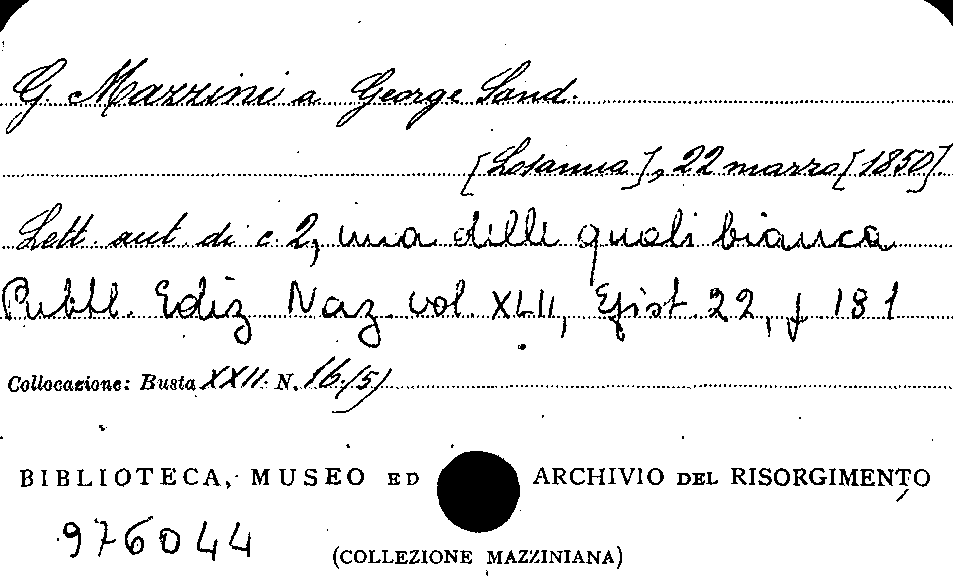 G. Mazzini a George Sand.
[Losanna], 22 marzo [1850].
Lett. aut. di c. 2, una delle quali bianca
Pubbl. Ediz Naz. vol. XLII, Epist. 22, p. 181
Collocazione: Busta XXII N. 16/5)
BIBLIOTECA, MUSEO ED ARCHIVIO DEL RISORGIMENTO
976044
(COLLEZIONE MAZZINIANA)